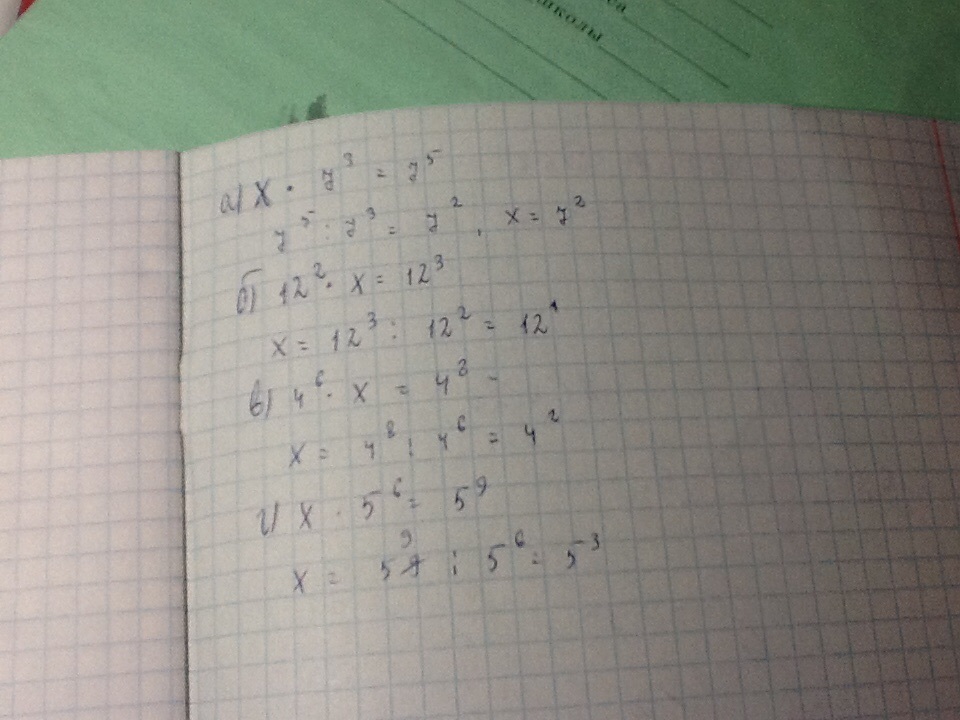 са
школы
а) X · 7³ = 7⁵
7⁵ : 7³ = 7², x = 7²
б) 12² · x = 12³
x = 12³ : 12² = 12¹
в) 4⁶ · x = 4⁸ -
x = 4⁸ : 4⁶ = 4²
г) X · 5⁶ = 5⁹
x = 5⁹ : 5⁶ = 5³